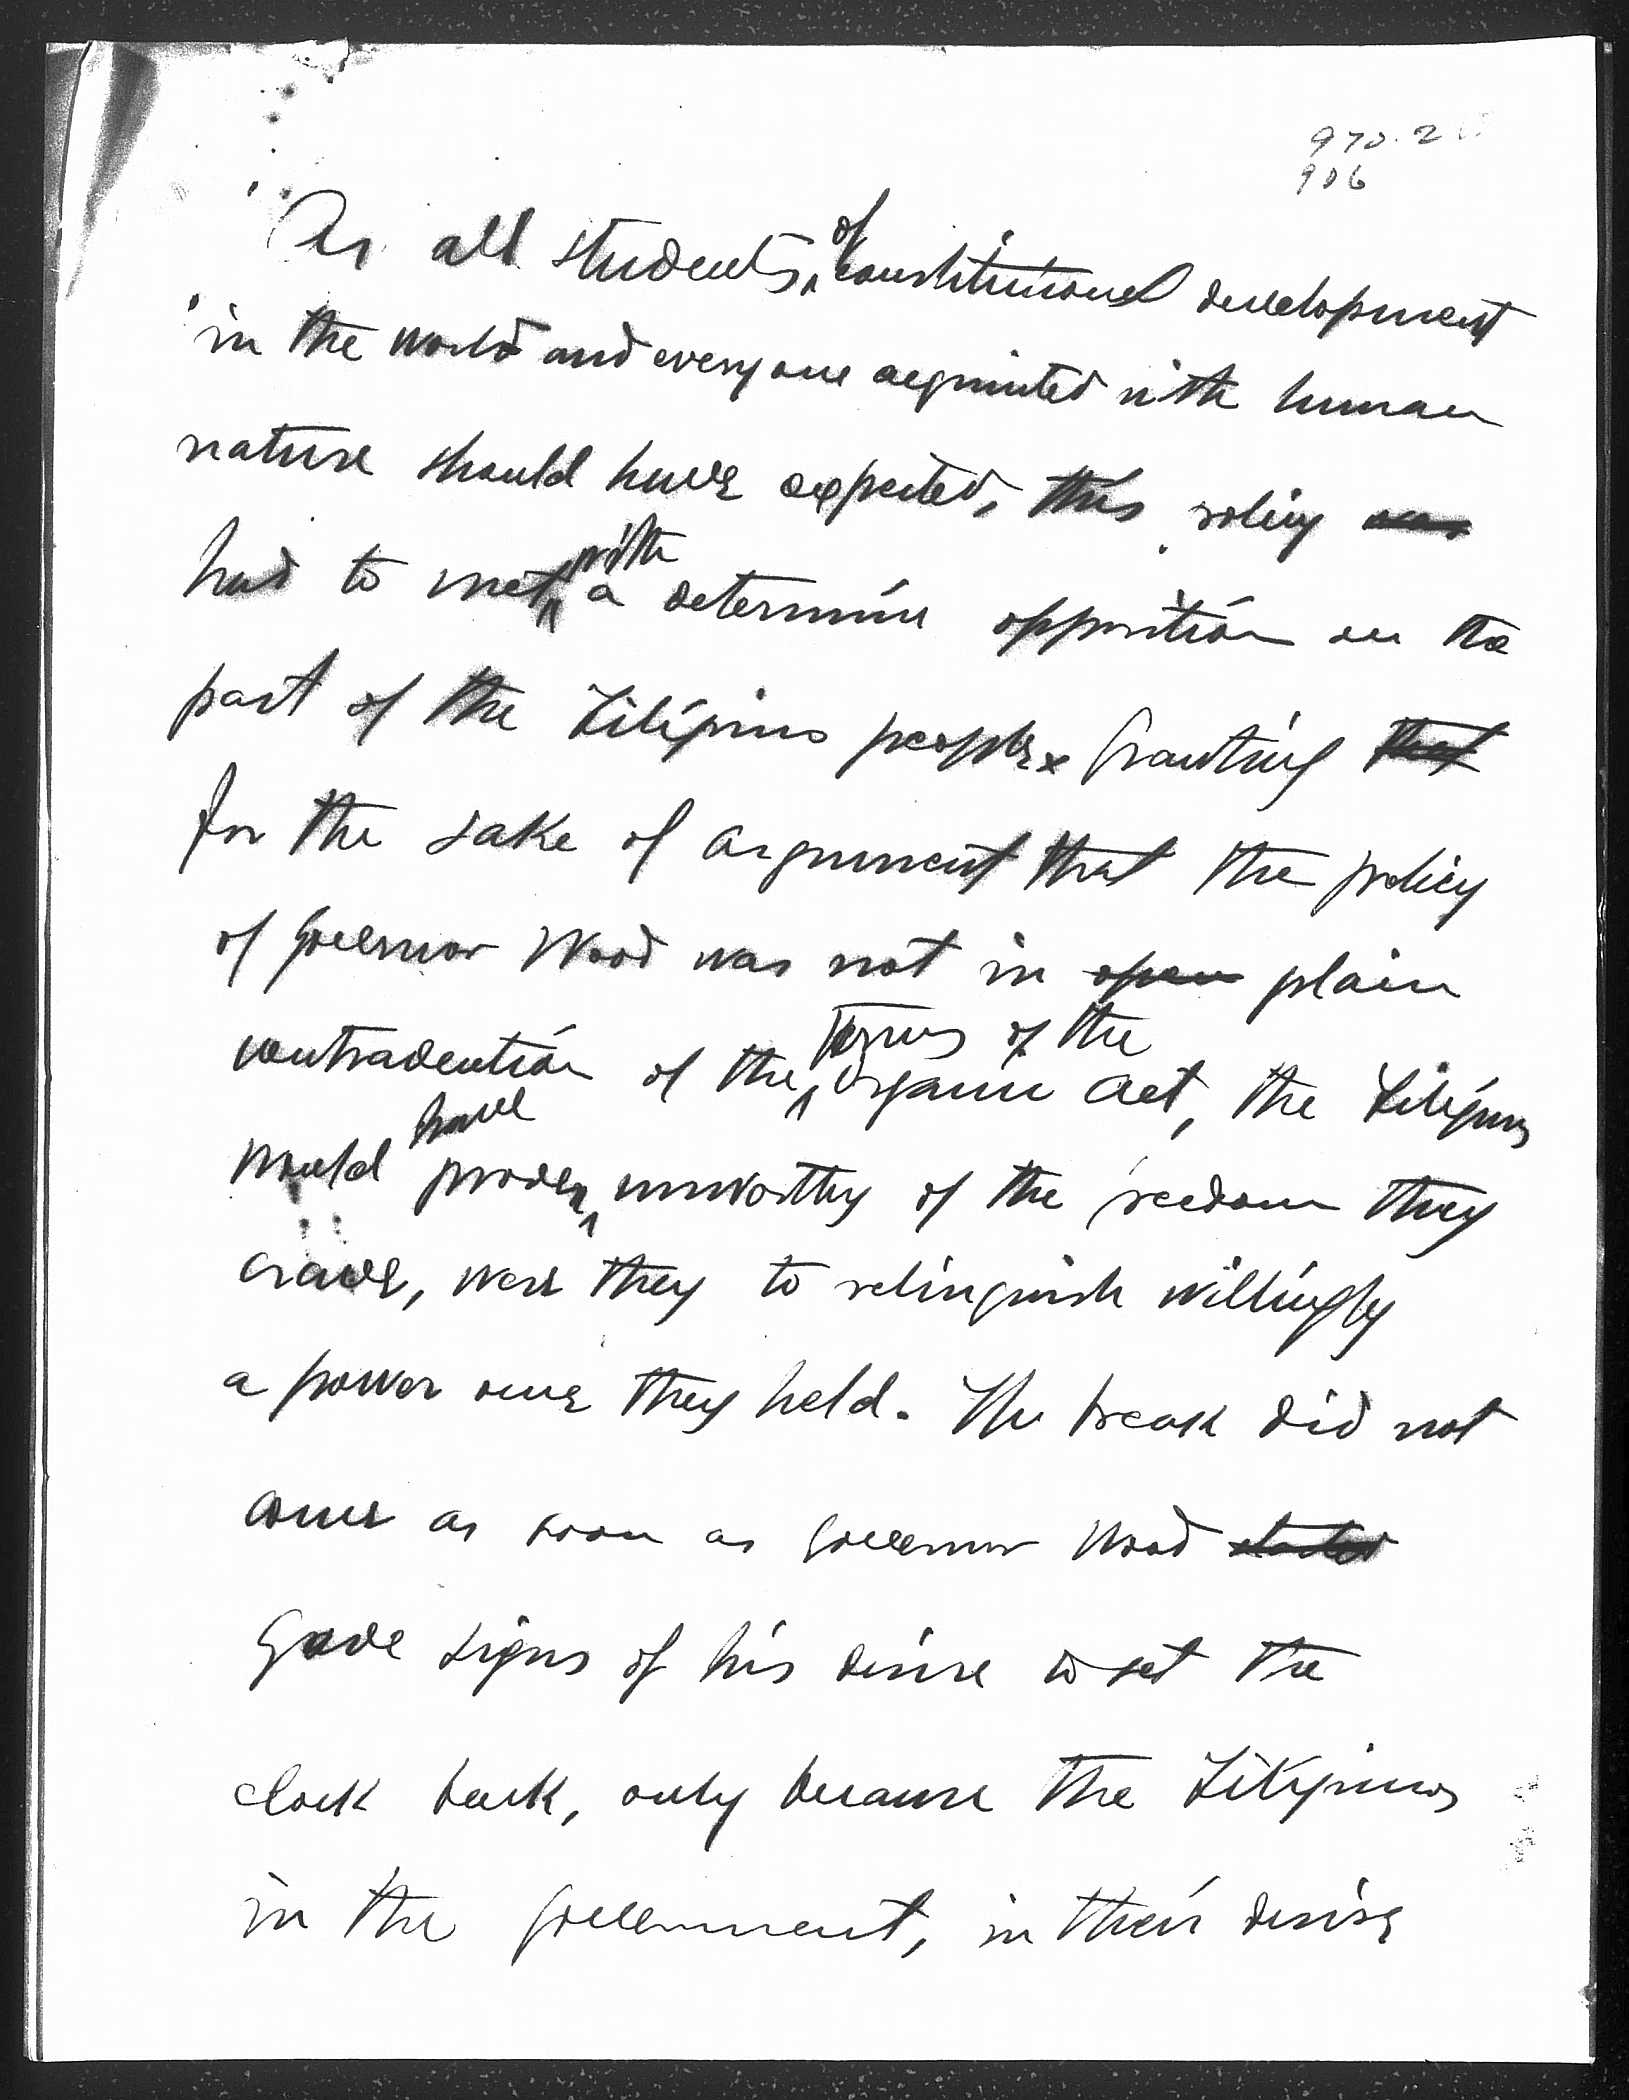 906
As all students of constitutional development
in the world and everyone aqcuinted with human
nature should have expected, this policy was
had to met with a determine opposition on the
part of the Filipino people. Granting that
for the sake of argument that the policy
of Governor Wood was not in open plain
contradention of the terms of the organic act, the Filipinos
would have proven unworthy of the freedom they
crave, were they to relinquish willingly
a power once they held. The break did not
come as soon as Governor Wood started
gave signs of his desire to set the
clock back, only because the Filipinos
in the government, in their desire